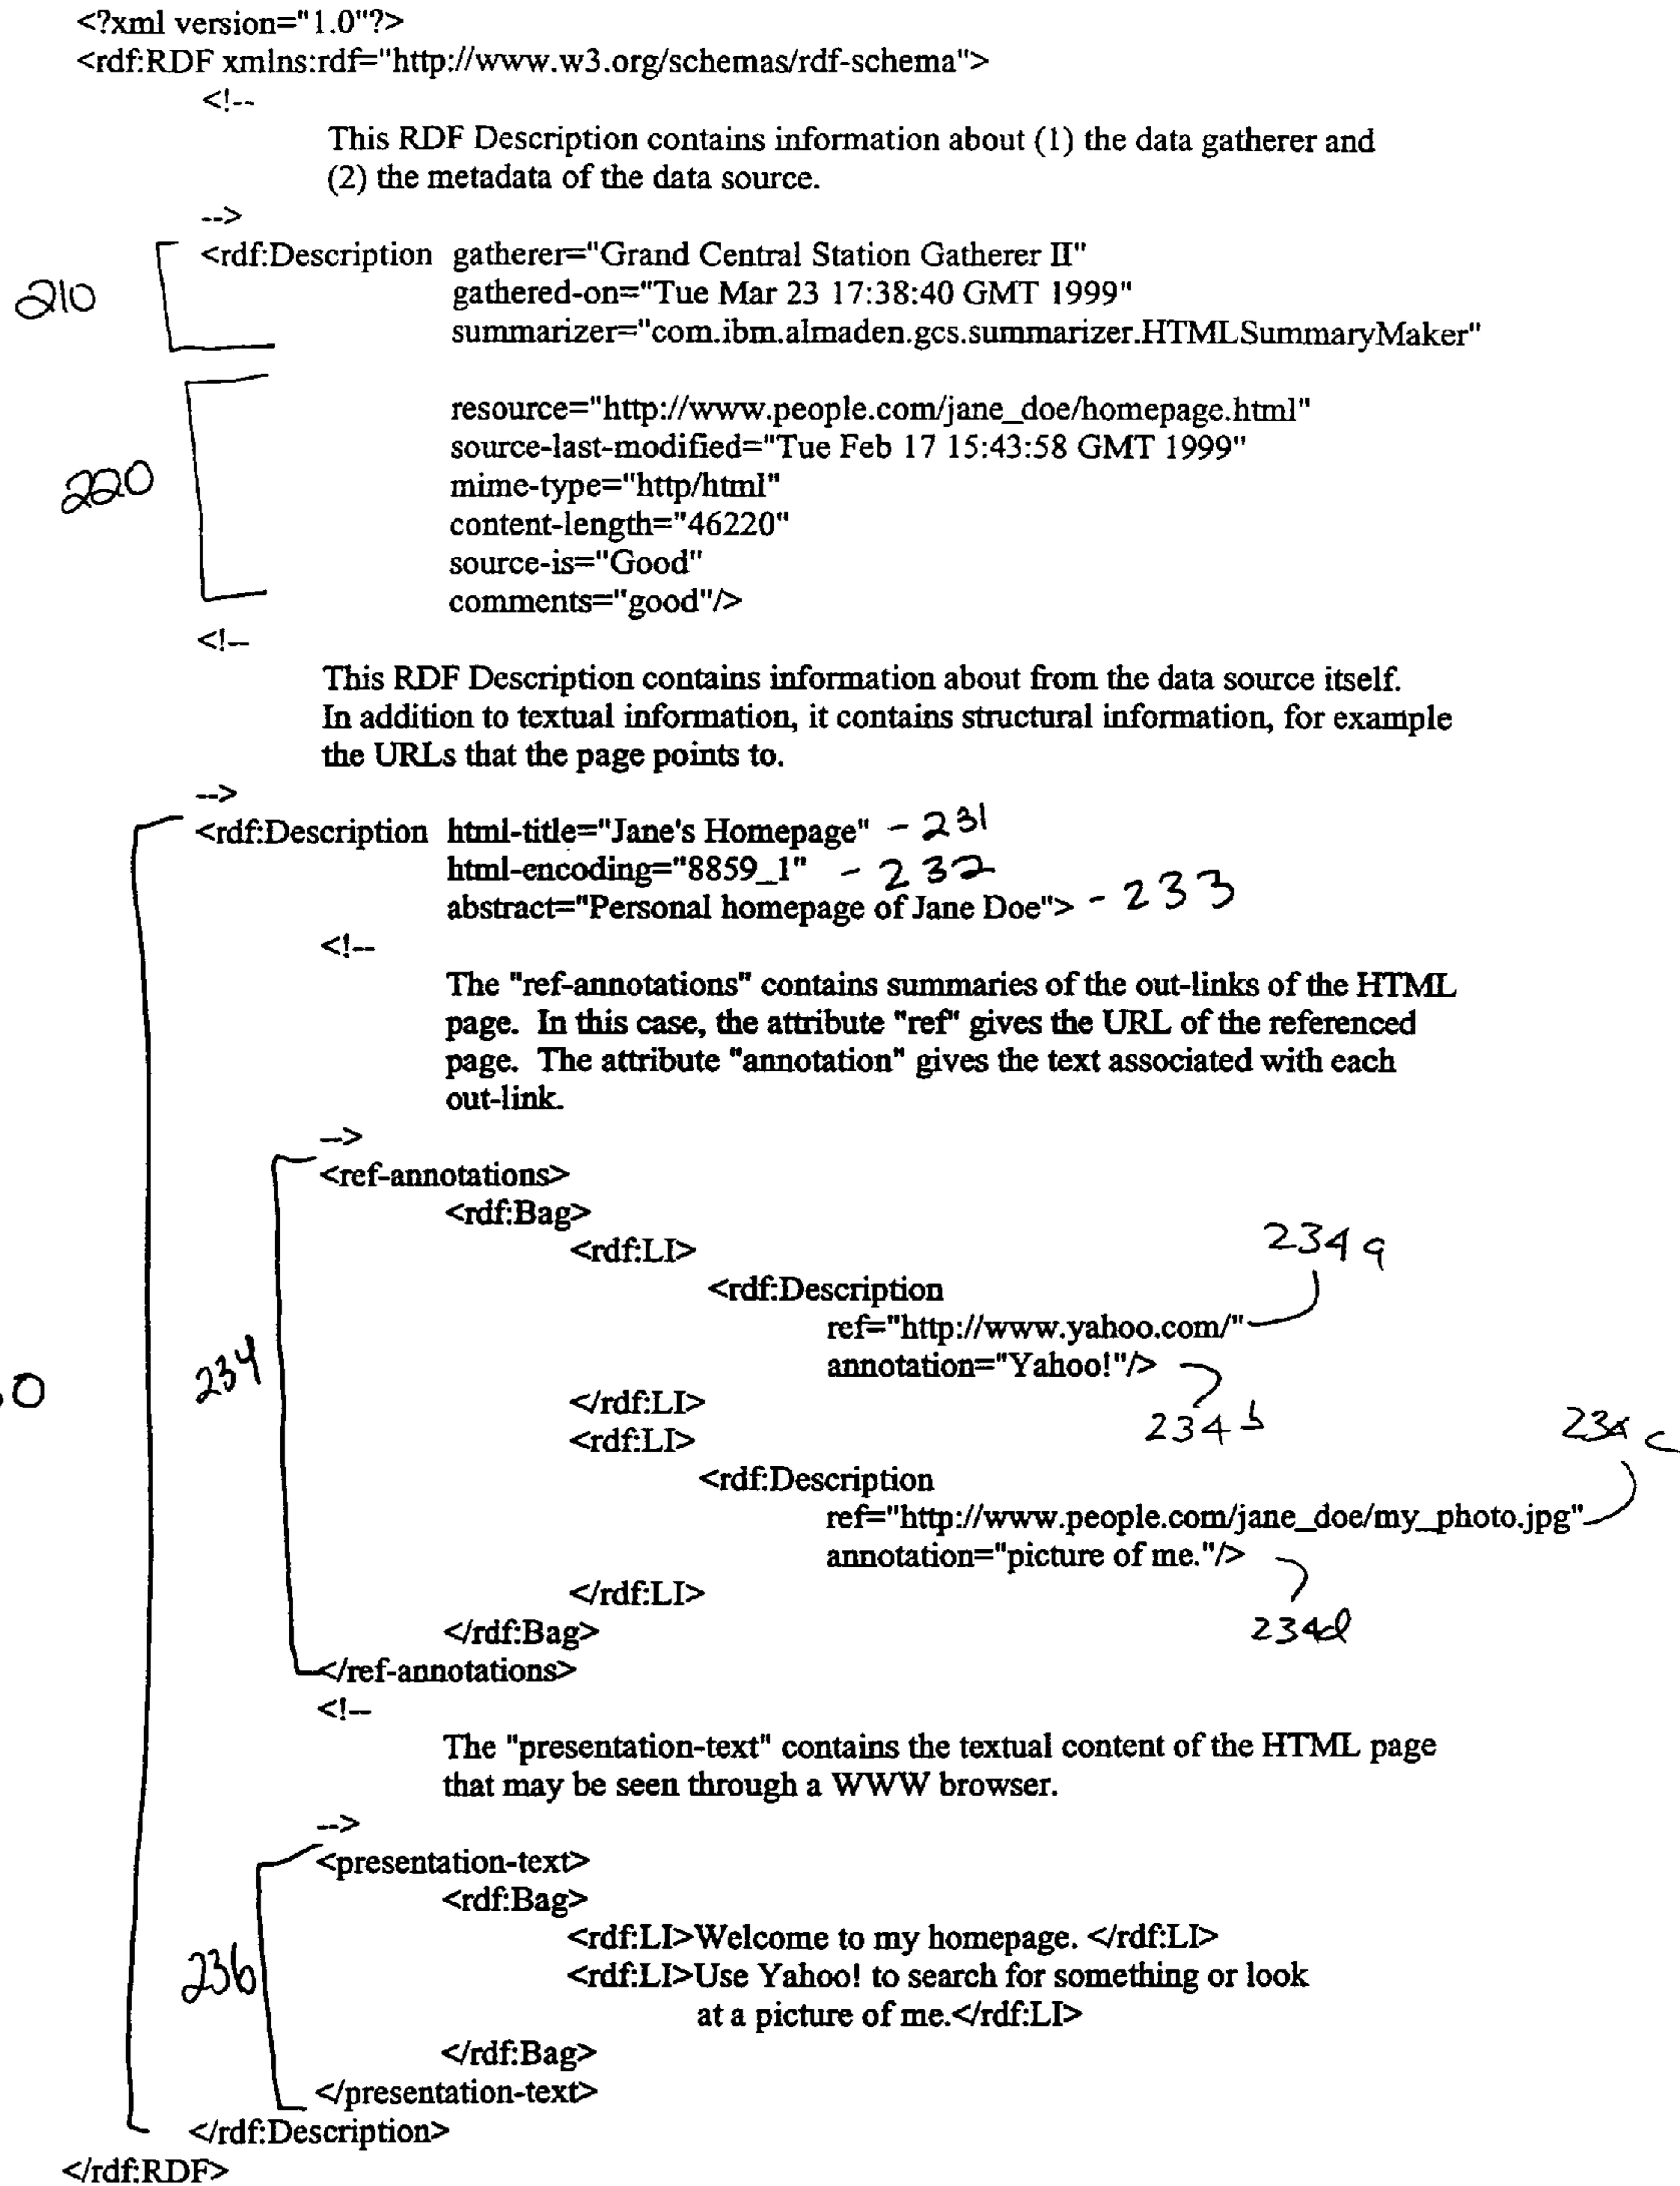 <?xml version="1.0"?>
<rdf:RDF xmlns:rdf="http://www.w3.org/schemas/rdf-schema">
<!--
This RDF Description contains information about (1) the data gatherer and
(2) the metadata of the data source.
-->
210
<rdf:Description gatherer="Grand Central Station Gatherer II"
gathered-on="Tue Mar 23 17:38:40 GMT 1999"
summarizer="com.ibm.almaden.gcs.summarizer.HTMLSummaryMaker"
220
resource="http://www.people.com/jane_doe/homepage.html"
source-last-modified="Tue Feb 17 15:43:58 GMT 1999"
mime-type="http/html"
content-length="46220"
source-is="Good"
comments="good"/>
<!--
This RDF Description contains information about from the data source itself.
In addition to textual information, it contains structural information, for example
the URLs that the page points to.
-->
<rdf:Description html-title="Jane's Homepage" - 231
html-encoding="8859_1" - 232
abstract="Personal homepage of Jane Doe"> - 233
<!--
The "ref-annotations" contains summaries of the out-links of the HTML
page. In this case, the attribute "ref" gives the URL of the referenced
page. The attribute "annotation" gives the text associated with each
out-link.
-->
<ref-annotations>
<rdf:Bag>
<rdf:LI>
234a
<rdf:Description
ref="http://www.yahoo.com/"
annotation="Yahoo!"/>
234
</rdf:LI>
234b
<rdf:LI>
234c
<rdf:Description
ref="http://www.people.com/jane_doe/my_photo.jpg"
annotation="picture of me."/>
</rdf:LI>
234d
</rdf:Bag>
</ref-annotations>
<!--
The "presentation-text" contains the textual content of the HTML page
that may be seen through a WWW browser.
-->
<presentation-text>
<rdf:Bag>
<rdf:LI>Welcome to my homepage. </rdf:LI>
236
<rdf:LI>Use Yahoo! to search for something or look
at a picture of me.</rdf:LI>
</rdf:Bag>
</presentation-text>
</rdf:Description>
</rdf:RDF>